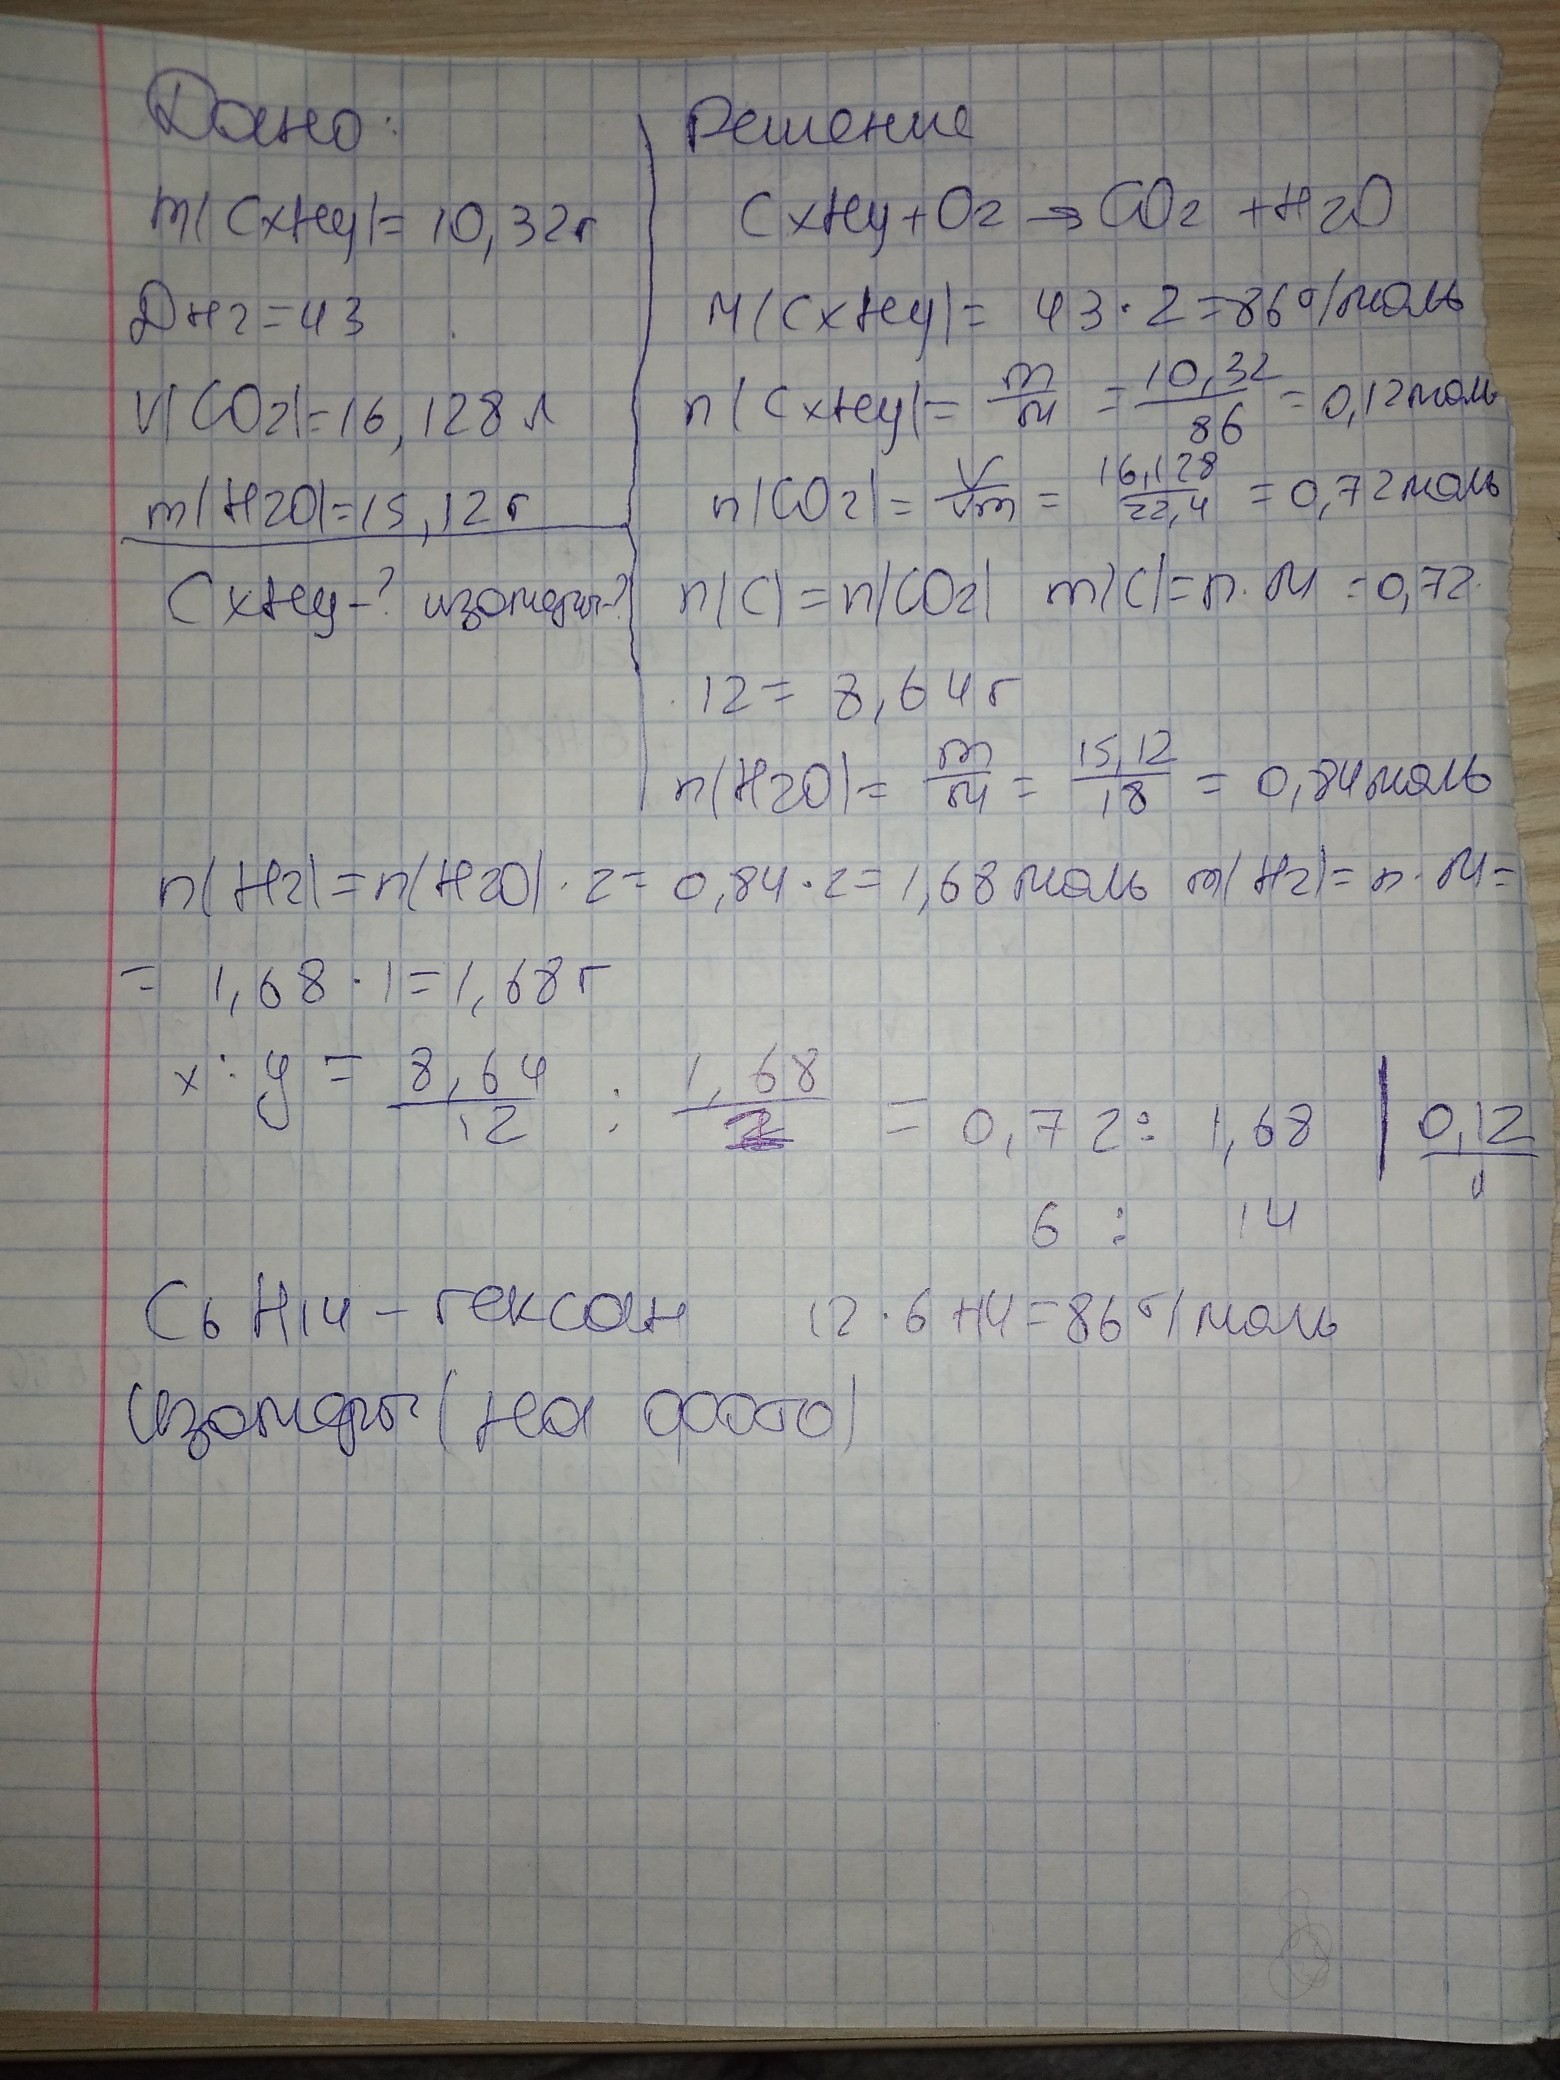 Дано:
m(CxHy)=10,32г
DH2=43
V(CO2)=16,128л
m(H2O)=15,12г
CxHy-? изомеры-?
Решение
CxHy+O2→CO2+H2O
M(CxHy)=43·2=86г/моль
n(CxHy)=m/M=10,32/86=0,12моль
n(CO2)=V/Vm=16,128/22,4=0,72моль
n(C)=n(CO2) m(C)=n·M=0,72·
·12=8,64г
n(H2O)=m/M=15,12/18=0,84моль
n(H2)=n(H2O)·2=0,84·2=1,68моль m(H2)=n·M=
=1,68·1=1,68г
x:y=8,64/12:1,68/1=0,72:1,68|0,12
6:14
C6H14-гексан 12·6+14=86г/моль
Изомеры(на фото)